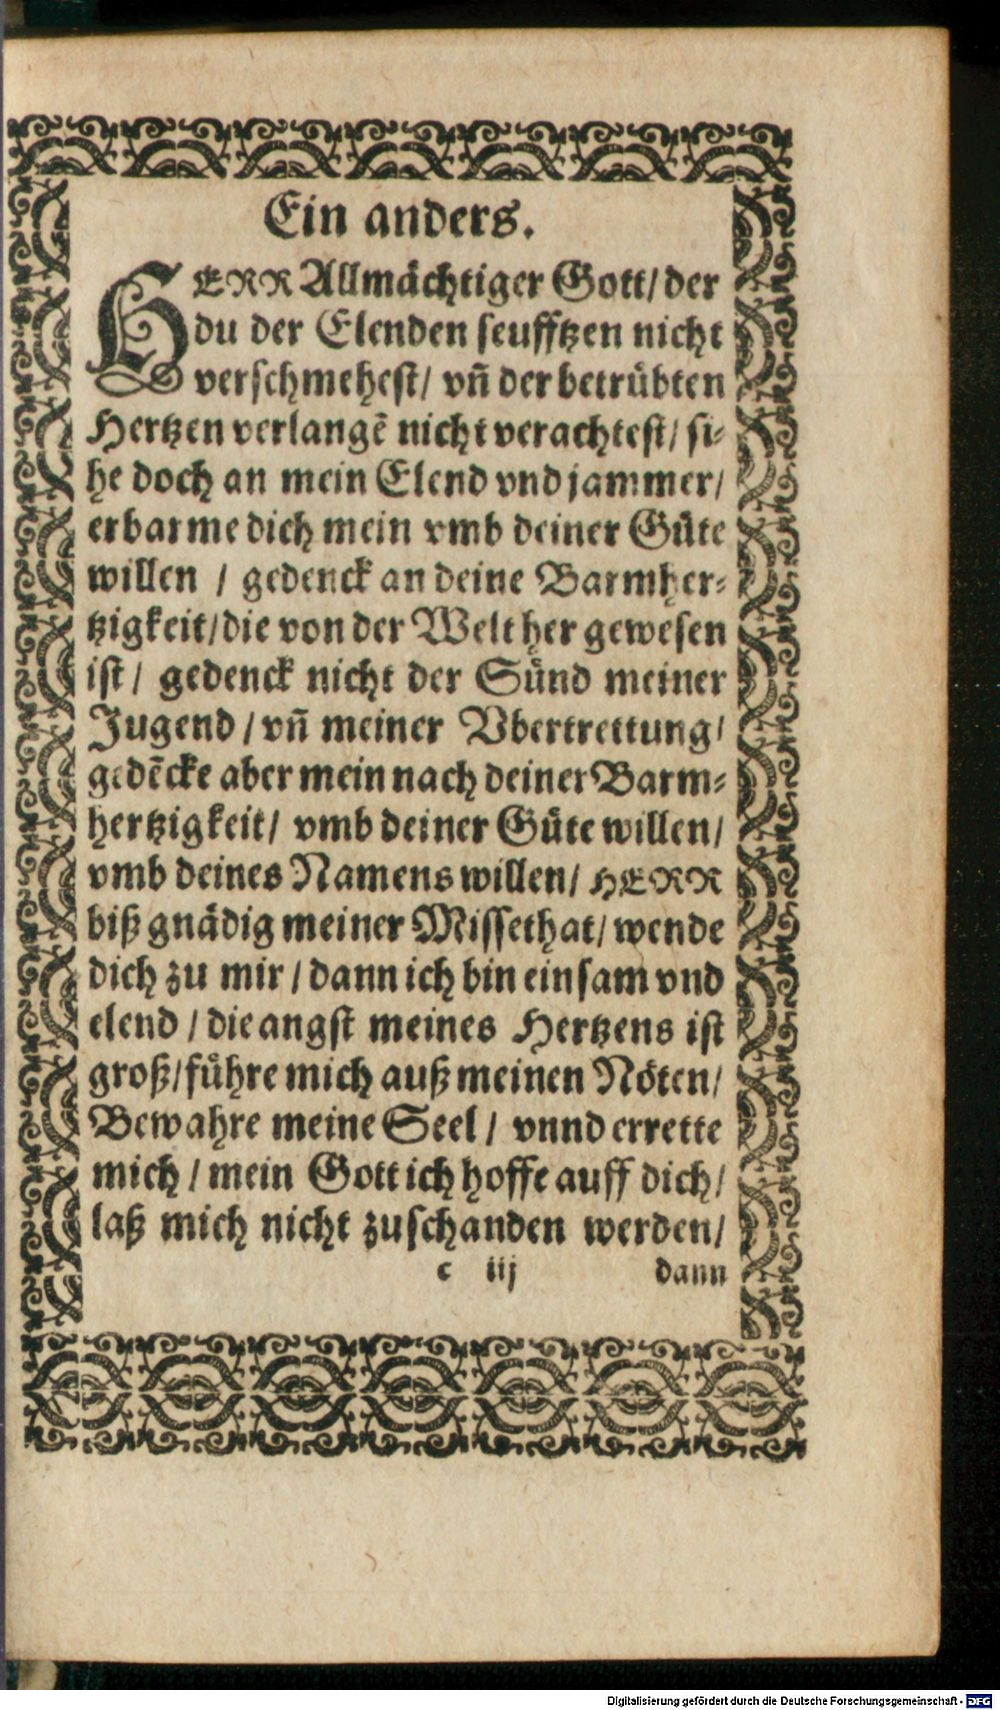 Ein anders.
HERR Allmächtiger Gott/ der
du der Elenden seufftzen nicht
verschmehest/ vñ der betrübten
Hertzen verlangẽ nicht verachtest/ si-
he doch an mein Elend vnd jammer/
erbarme dich mein vmb deiner Güte
willen / gedenck an deine Barmher-
tzigkeit/ die von der Welt her gewesen
ist/ gedenck nicht der Sünd meiner
Jugend / vñ meiner Vbertrettung/
gedẽcke aber mein nach deiner Barm-
hertzigkeit/ vmb deiner Güte willen/
vmb deines Namens willen/ HERR
biß gnädig meiner Missethat/ wende
dich zu mir / dann ich bin einsam vnd
elend / die angst meines Hertzens ist
groß/ führe mich auß meinen Nöten/
Bewahre meine Seel / vnnd errette
mich / mein Gott ich hoffe auff dich/
laß mich nicht zuschanden werden/
c iij dann
Digitalisierung gefördert durch die Deutsche Forschungsgemeinschaft - DFG